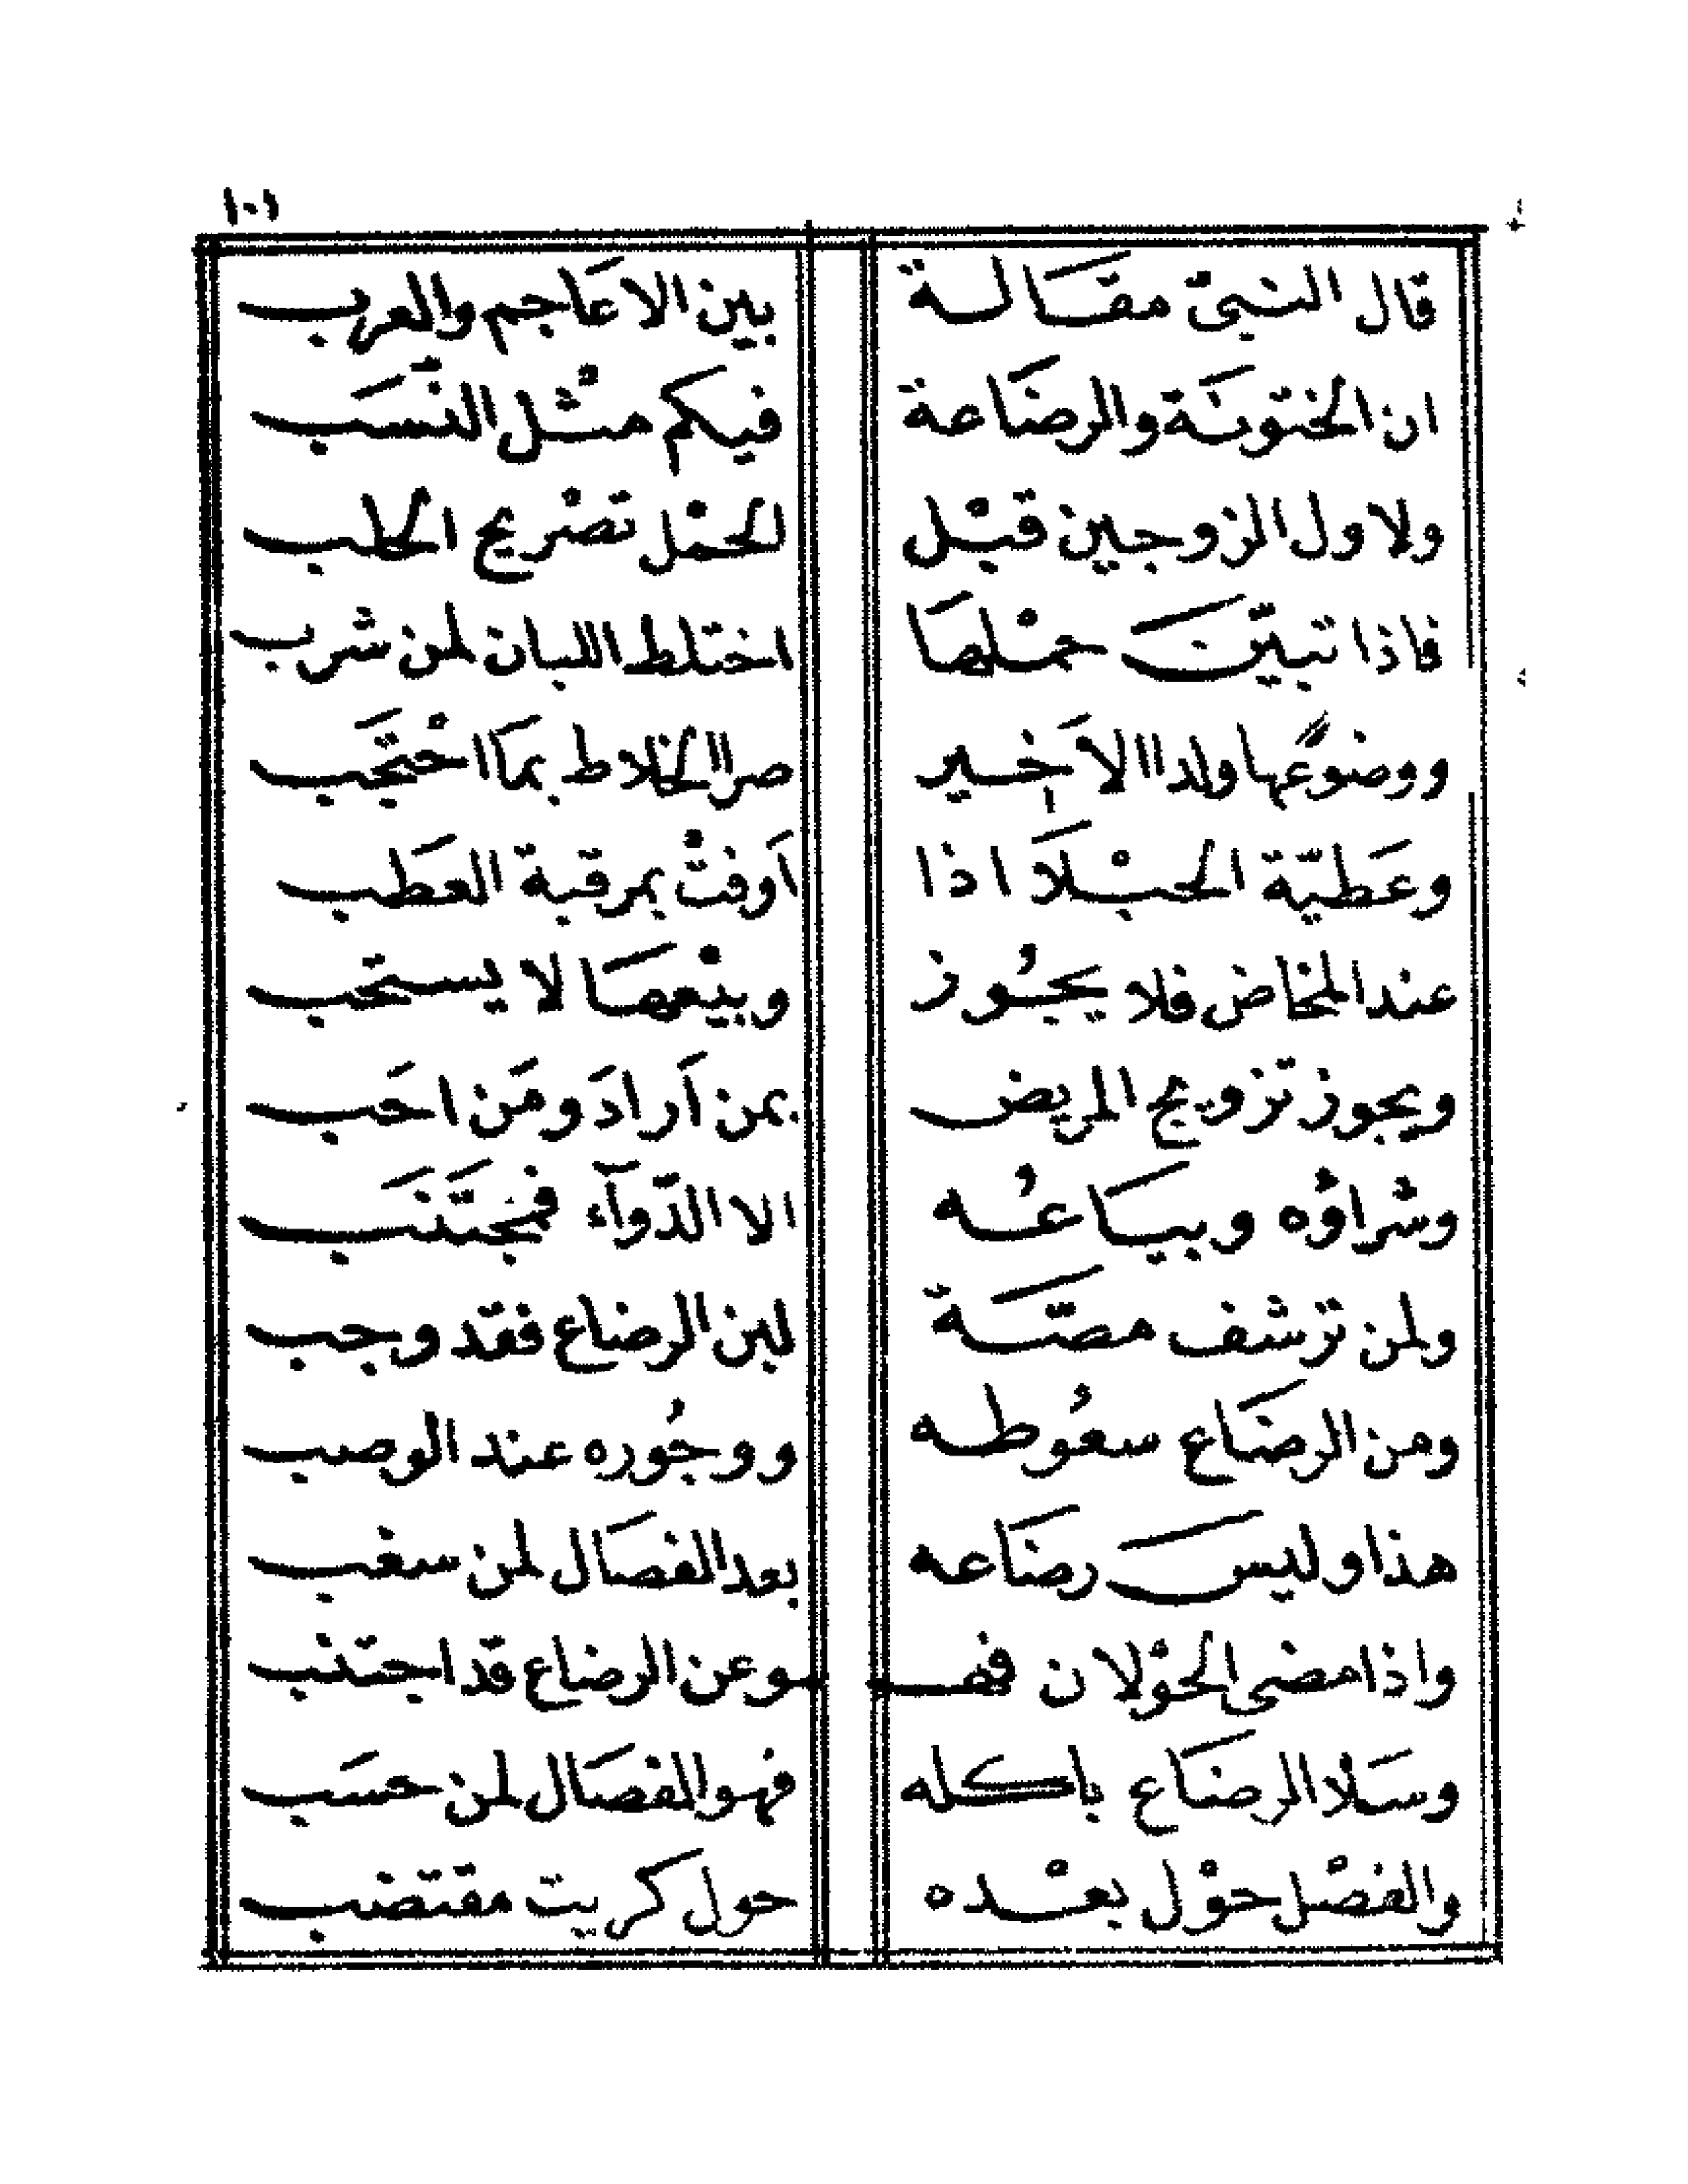 ١٠١
قال النبىّ مقَالة بين الاعَاجم والعرب
ان الختونَة والرضَاعة فيكم مثْل النّسَب
ولاول الزوجين قبْل الحمْل تصْريح الحلب
فاذا تبيّنَ حمْلهَا اختلط اللبان لمن شرب
ووضوعُها ولدا الاَخير صرا الخلاط بمَا احْتجَب
وعَطيّة الحبْلَا اذا اَوفتْ بمرقبة العَطب
عند المخاض فلا يجُوز وبيْعهَا لا يستحب
ويجوز تزويج المريض بمن اَرادَ ومَن احَب
وشراؤه وبيَاعُه الا الدّوآء فمجتَنَب
ولمن ترشف مصّة لبن الرضاع فقد وجب
ومن الرضَاع سعُوطه ووجُوره عند الوصب
هذا وليسَ رضَاعه بعد الفصَال لمن سغب
واذا مضى الحوْلان فهو عن الرضاع قد اجتنب
وسَلا الرضَاع باكله فهو الفصَال لمن حسَب
والفصْل حوْل بعْده حول كريت مقتضب